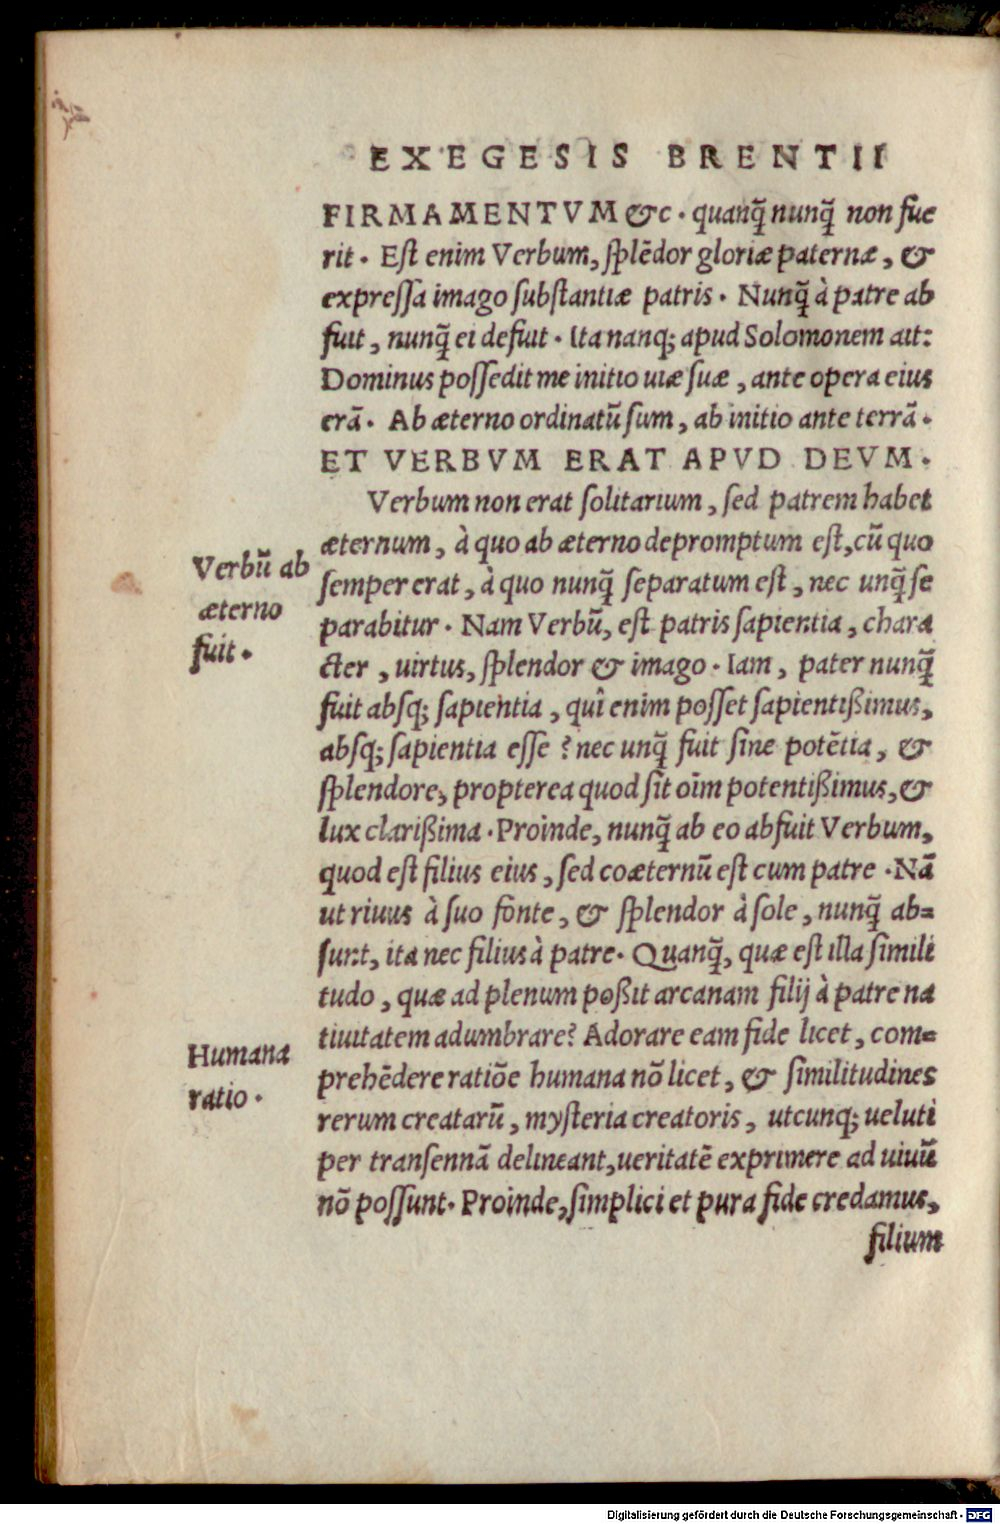 EXEGESIS BRENTII
FIRMAMENTVM &c. quanq̃ nunq̃ non fue
rit. Est enim Verbum, splēdor gloriæ paternæ, &
expressa imago substantiæ patris. Nunq̃ à patre ab
fuit, nunq̃ ei defuit. Ita nanq; apud Solomonem ait:
Dominus possedit me initio uiæ suæ, ante opera eius
erā. Ab æterno ordinatū sum, ab initio ante terrā.
ET VERBVM ERAT APVD DEVM.
Verbum non erat solitarium, sed patrem habet
æternum, à quo ab æterno depromptum est, cū quo
semper erat, à quo nunq̃ separatum est, nec unq̃ se
parabitur. Nam Verbū, est patris sapientia, chara
cter, uirtus, splendor & imago. Iam, pater nunq̃
fuit absq; sapientia, quî enim posset sapientißimus,
absq; sapientia esse? nec unq̃ fuit sine potētia, &
splendore, propterea quod sit oīm potentißimus, &
lux clarißima. Proinde, nunq̃ ab eo abfuit Verbum,
quod est filius eius, sed coæternū est cum patre. Nā
ut riuus à suo fonte, & splendor à sole, nunq̃ ab=
sunt, ita nec filius à patre. Quanq̃, quæ est illa simili
tudo, quæ ad plenum poßit arcanam filij à patre na
tiuitatem adumbrare? Adorare eam fide licet, com=
prehēdere ratiōe humana nō licet, & similitudines
rerum creatarū, mysteria creatoris, utcunq; ueluti
per transennā delineant, ueritatē exprimere ad uiuū
nō possunt. Proinde, simplici et pura fide credamus,
filium
Verbū ab
æterno
fuit.
Humana
ratio.
Digitalisierung gefördert durch die Deutsche Forschungsgemeinschaft - DFG